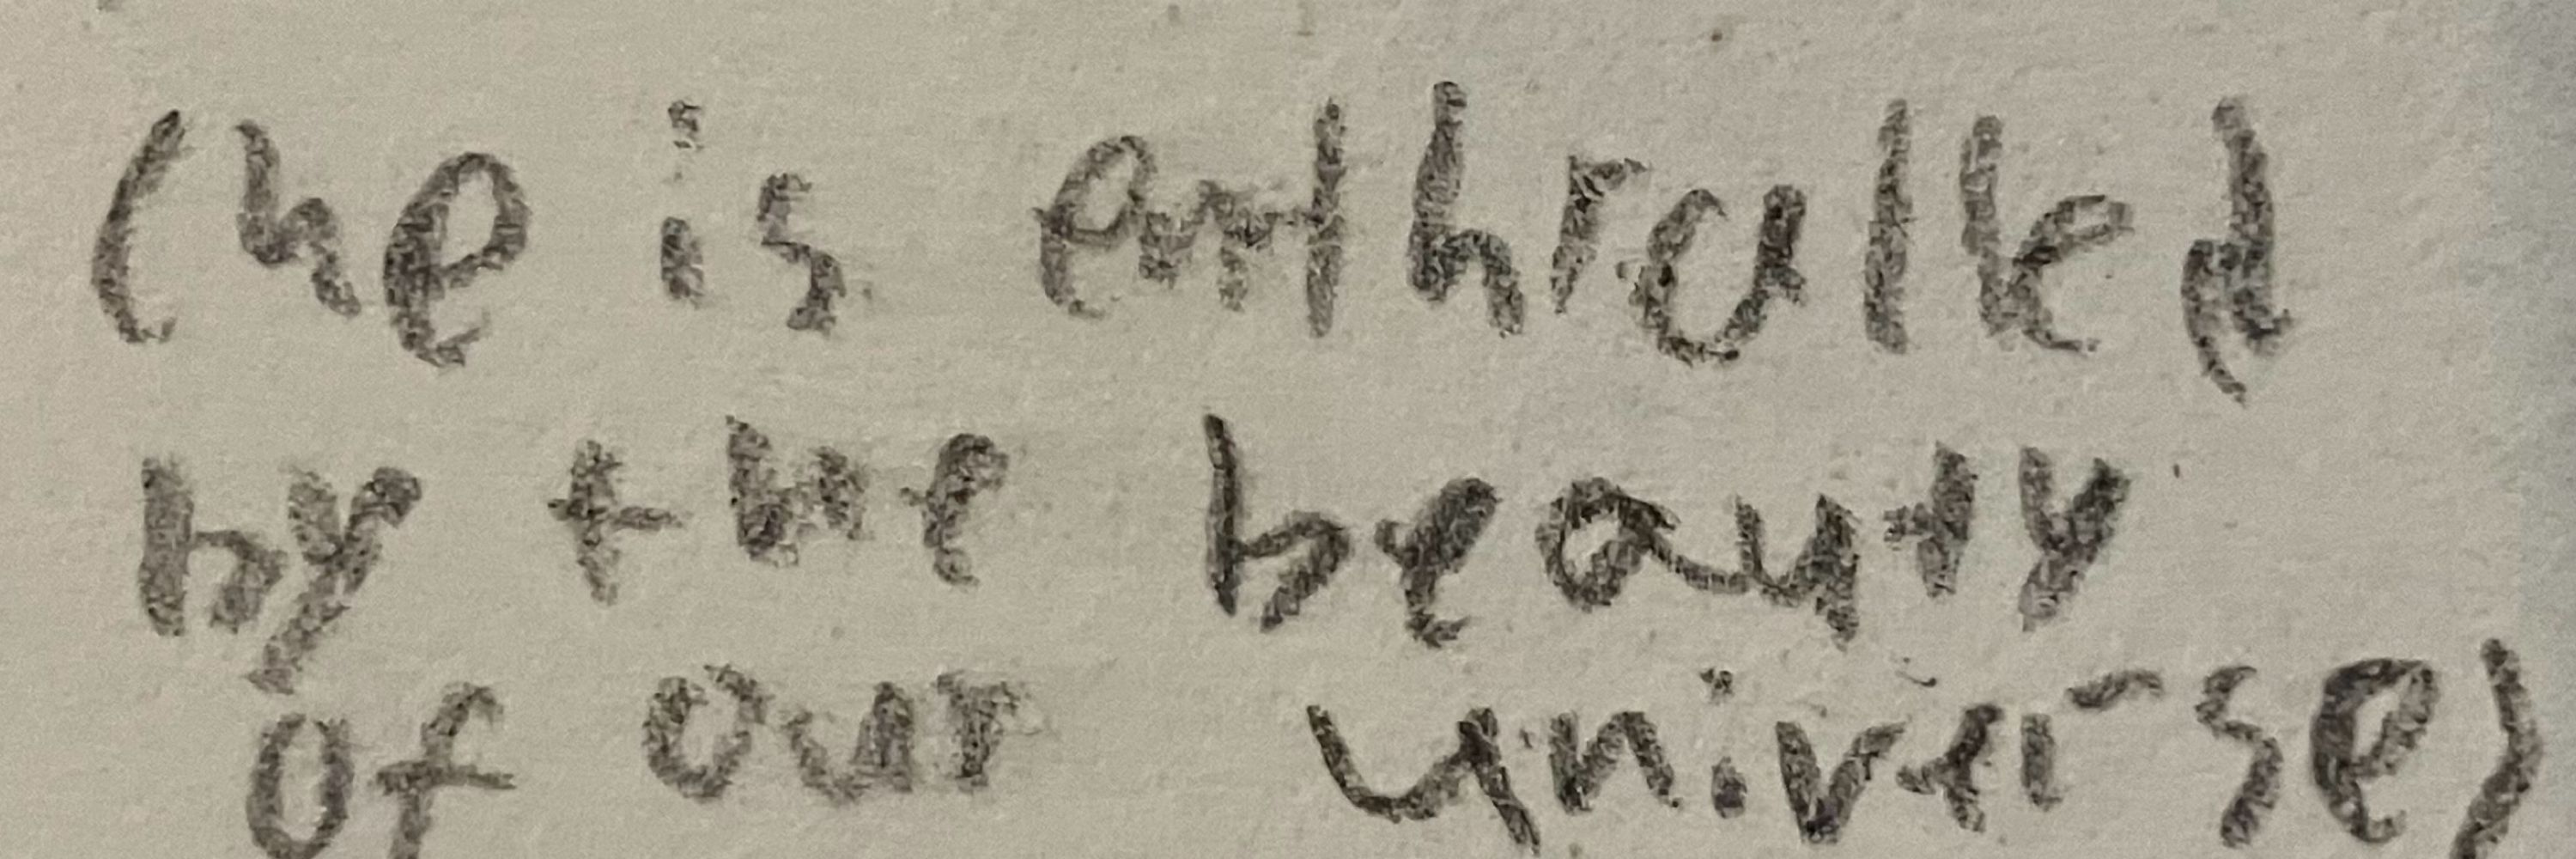 (he is enthralled
by the beauty
of our universe)